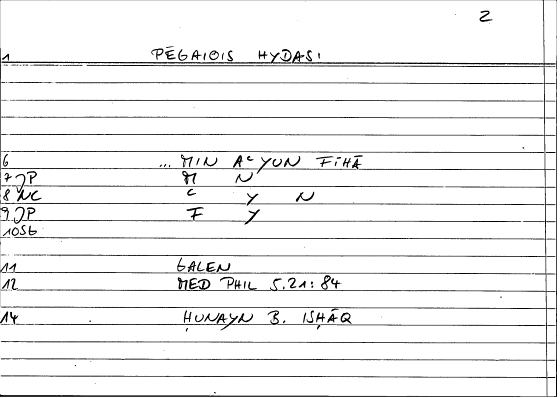 2
1 PĒGAIOIS HYDASI
6 ... MIN AʿYUN FĪHĀ
7 JP M N
8 NC ʿ Y N
9 JP F Y
10Sb
11 GALEN
12 MED PHIL 5.21:84
14 ḤUNAYN B. ISḤĀQ